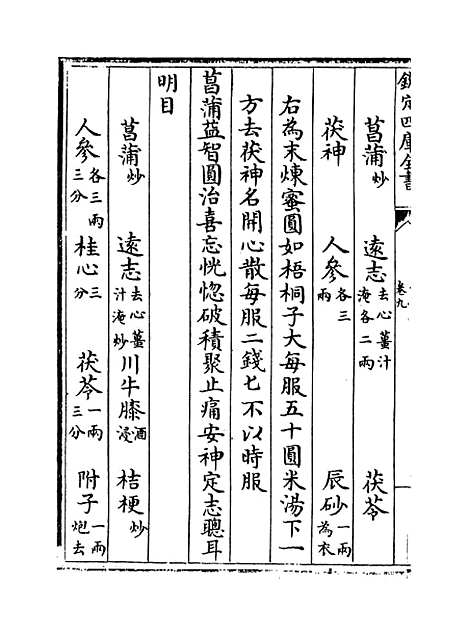 欽定四庫全書
卷九
菖蒲炒 遠志去心薑汁淹各二兩 茯苓
茯神 人參各三兩 辰砂一兩為衣
右為末煉蜜圓如梧桐子大每服五十圓米湯下一
方去茯神名開心散每服二錢匕不以時服
菖蒲益智圓治喜忘恍惚破積聚止痛安神定志聰耳
明目
菖蒲炒 遠志去心薑汁淹炒 川牛膝酒浸 桔梗炒
人參各三兩三分 桂心三分 茯苓一兩三分 附子一兩炮去